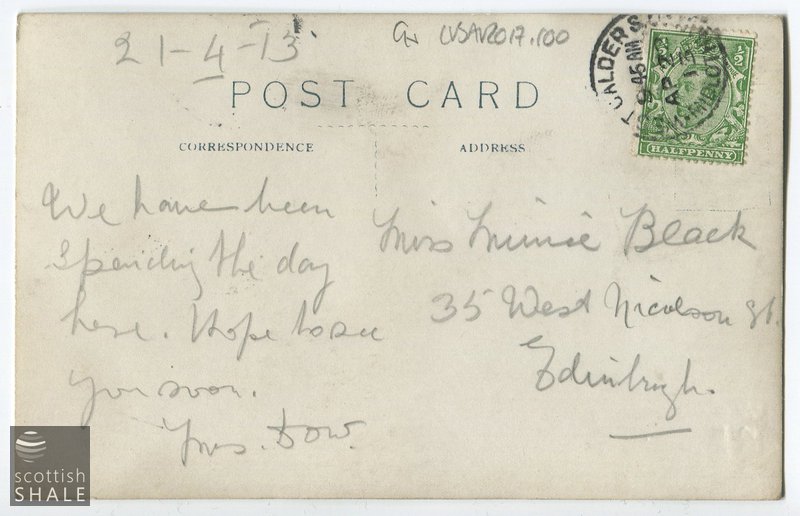 21-4-13
LVSAV2017.100
POST CARD
CORRESPONDENCE
ADDRESS
CALDER S.O.
9 45 AM
AP
EDINBURGH
½
HALFPENNY
We have been
spending the day
here. Hope to see
you soon.
Yrs. Dow.
Miss Minnie Black
35 West Nicolson St.
Edinburgh.
scottish
SHALE